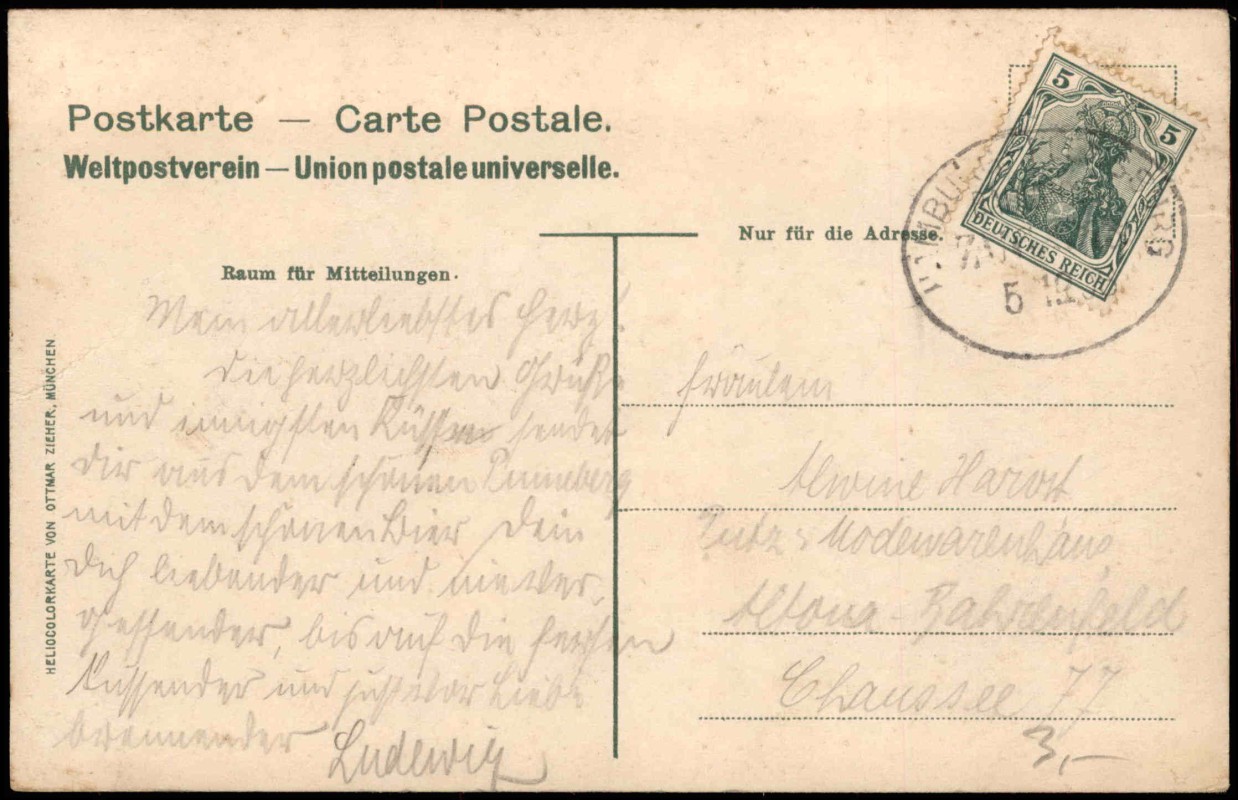 Postkarte — Carte Postale.
Weltpostverein — Union postale universelle.
Nur für die Adresse.
Raum für Mitteilungen.
HELIOCOLORKARTE VON OTTMAR ZIEHER, MÜNCHEN
5 5
DEUTSCHES REICH
5
Mein allerliebstes Herz!
Die herzlichsten Grüße
und innigsten Küsse sendet
Dir aus dem schönen Pinneberg
mit dem schönen Bier Dein
Dich liebender und niever-
gessender, bis auf die
küssender und Liebe
brennender Ludewig
Fräulein
Alwine
Putz & Modewarenhaus
Altona-Bahrenfeld
Chaussee 77
3,-